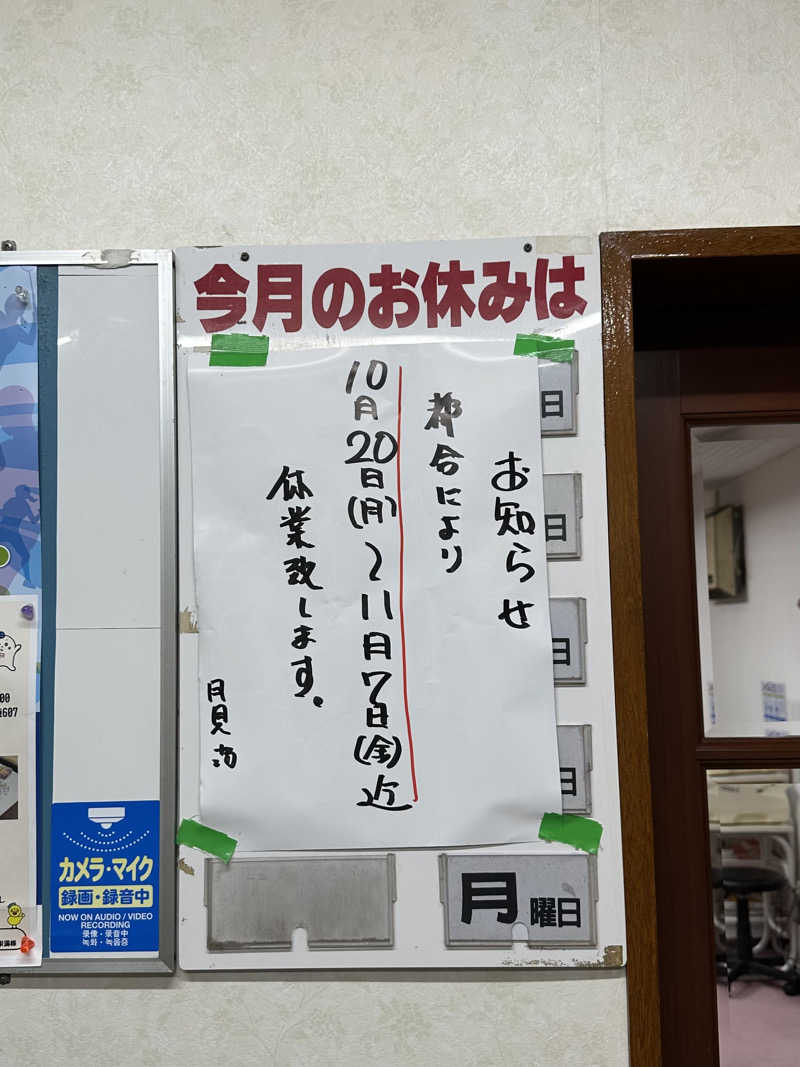 今月のお休みは
お知らせ
都合により
10月20日(月)〜11月7日(金)迄
休業致します。
月見湯
日
日
日
日
月曜日
カメラ・マイク
録画・録音中
NOW ON AUDIO / VIDEO
RECORDING
录像・录音中
녹화・녹음중
00
607